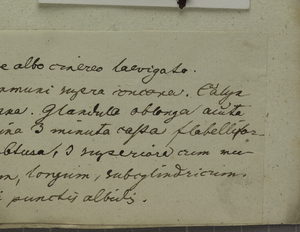 e albo cinereo laevigato.
ommuni supera concava. Calyx
ana. Glandula oblonga acuta
ina 3 minuta capsa flabellifor-
obtusa, 3 superiora cum mu-
m, longum, subcylindricum.
i punctis albidis.